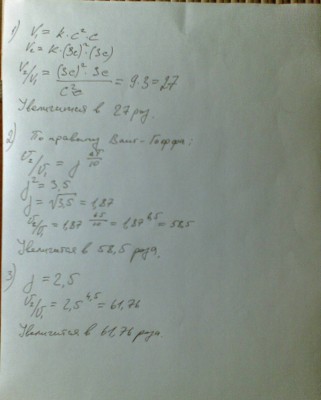 1) V₁ = k · c² · c
V₂ = k · (3c)² · (3c)
V₂/V₁ = (3c)² · 3c / c²c = 9 · 3 = 27
Увеличится в 27 раз.
2) По правилу Вант-Гоффа:
V₂/V₁ = j^(45/10)
j² = 3,5
j = √3,5 = 1,87
V₂/V₁ = 1,87^(45/10) = 1,87^4,5 = 58,5
Увеличится в 58,5 раза.
3) j = 2,5
V₂/V₁ = 2,5^4,5 = 61,76
Увеличится в 61,76 раза